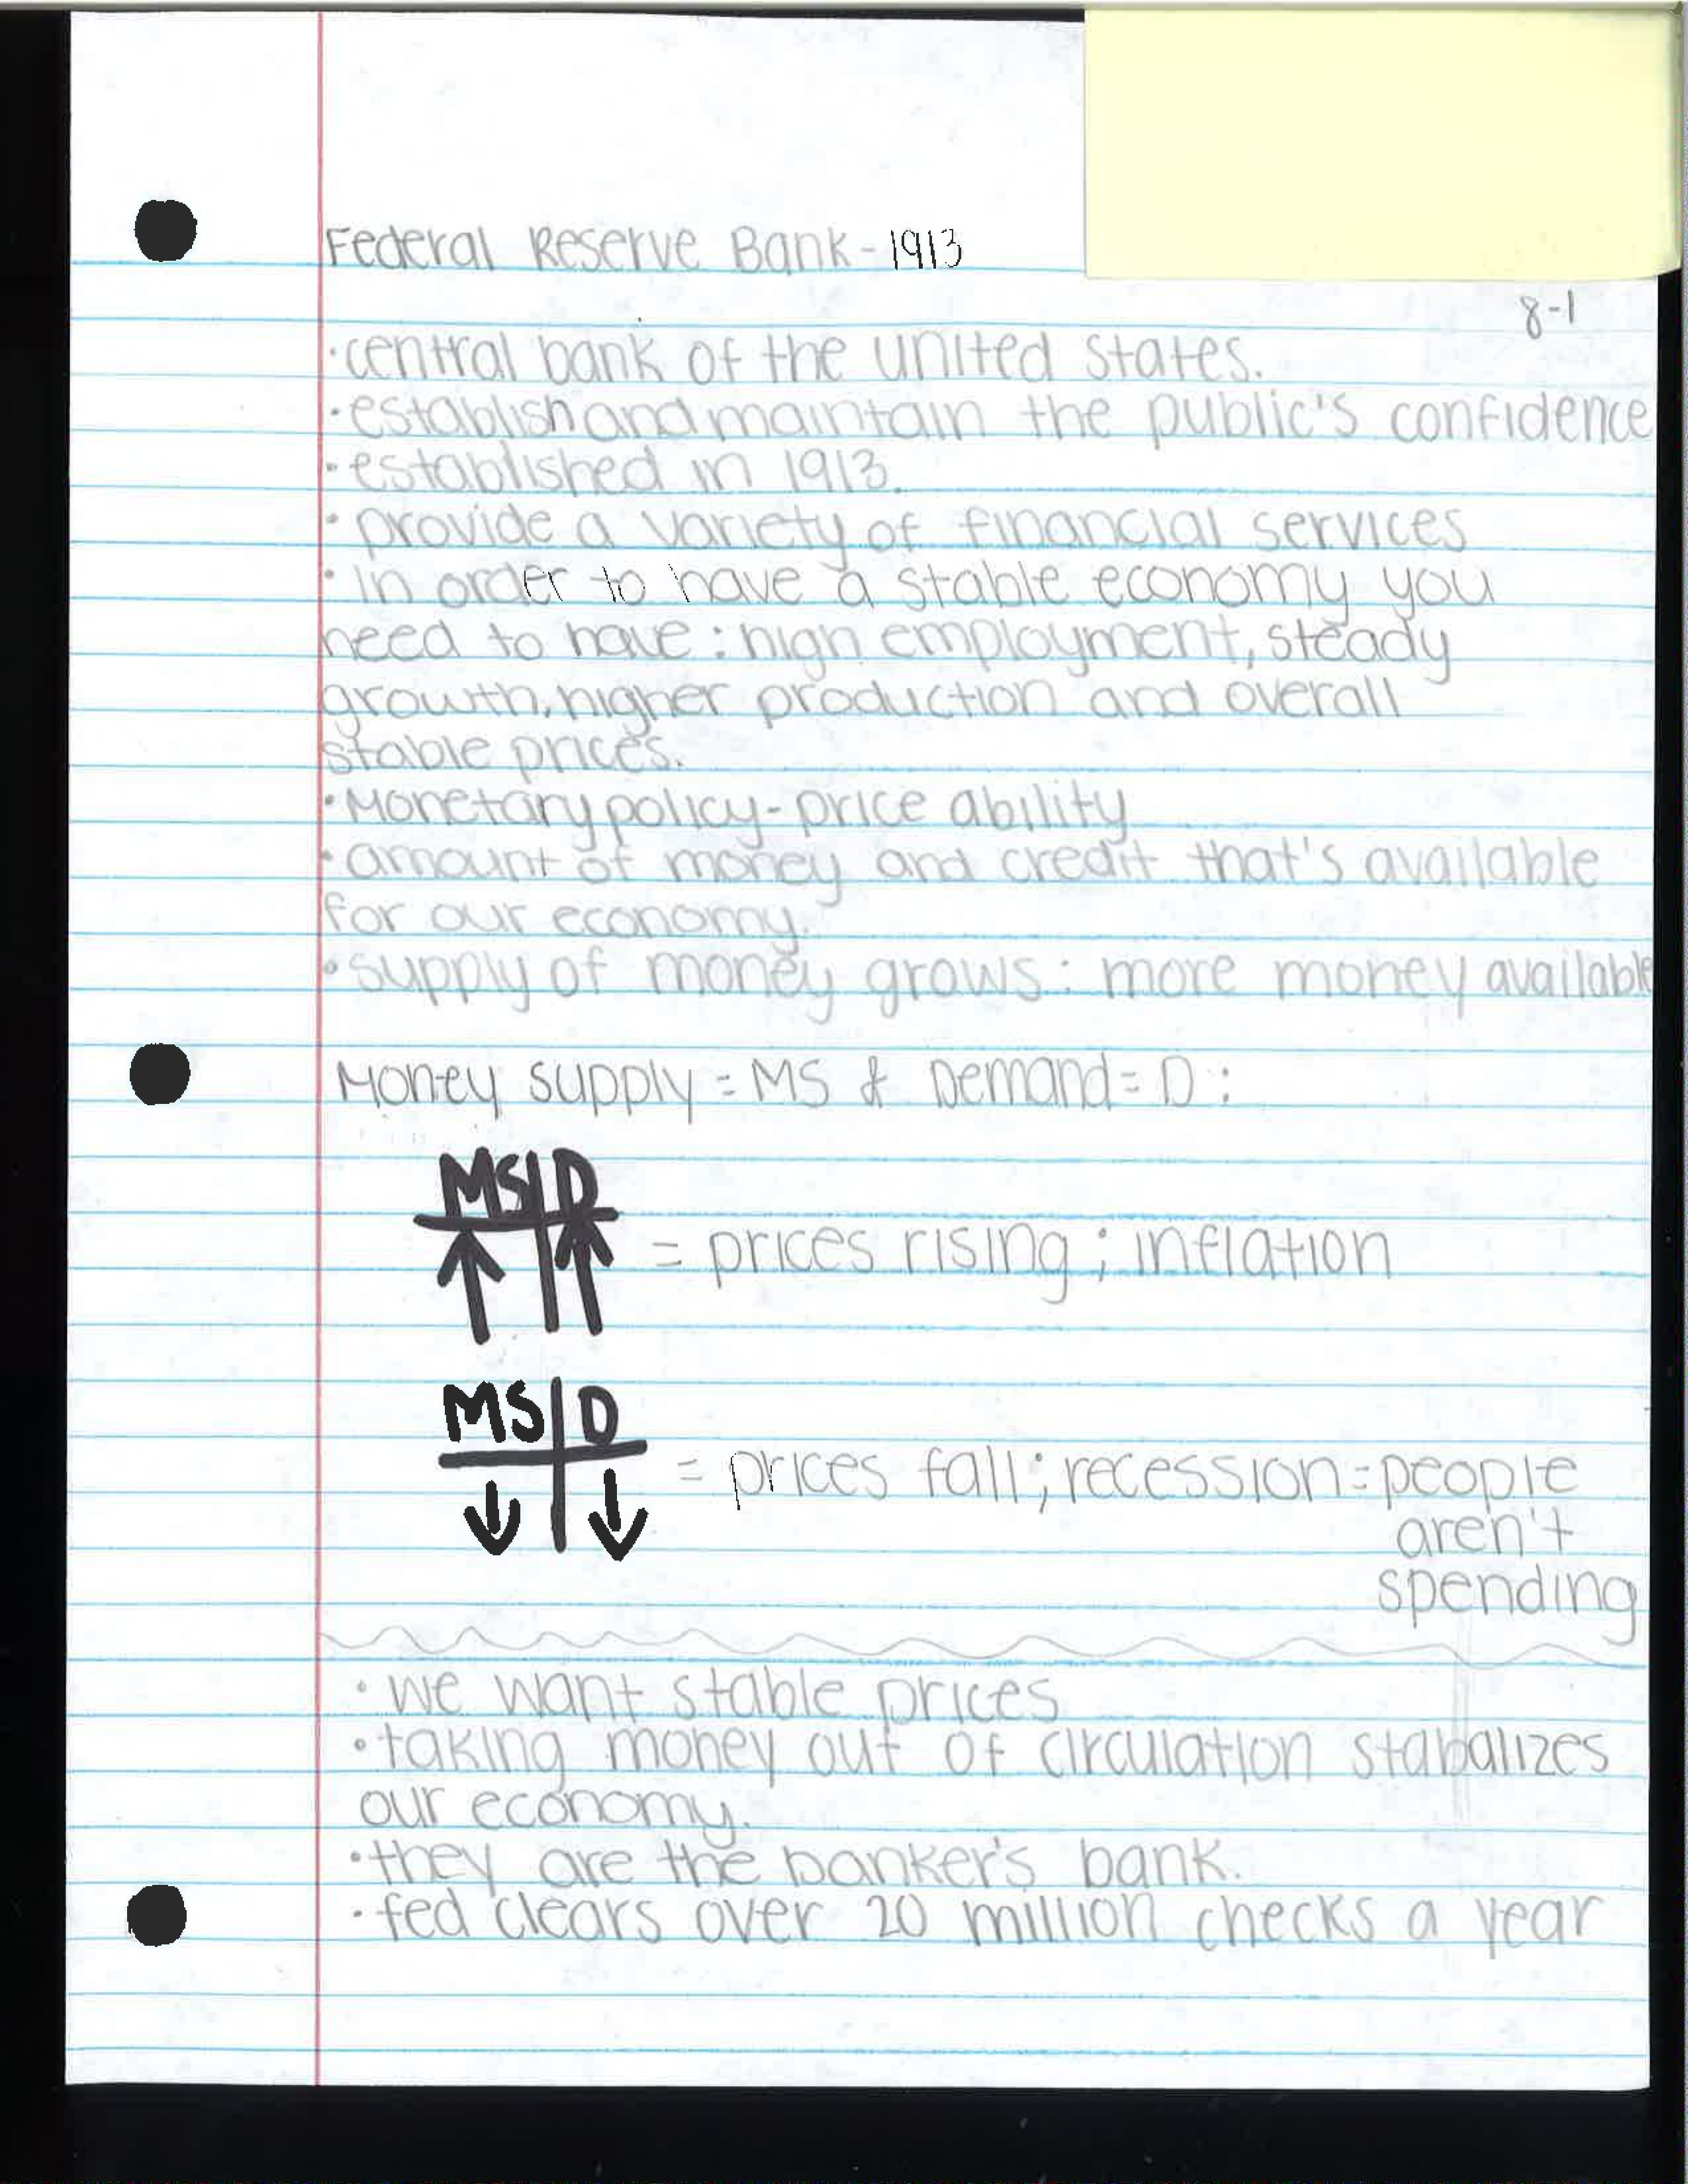 Federal Reserve Bank - 1913
8-1
· central bank of the united states.
· establish and maintain the public's confidence
· established in 1913.
· provide a variety of financial services
· In order to have a stable economy you
need to have : high employment, steady
growth, higher production and overall
stable prices.
· Monetary policy - price ability
· amount of money and credit that's available
for our economy.
· supply of money grows : more money available
Money supply = MS & Demand = D :
MS | D
↑ | ↑ = prices rising ; inflation
MS | D
↓ | ↓ = prices fall ; recession = people
aren't
spending
· we want stable prices
· taking money out of circulation stabalizes
our economy.
· they are the banker's bank.
· fed clears over 20 million checks a year